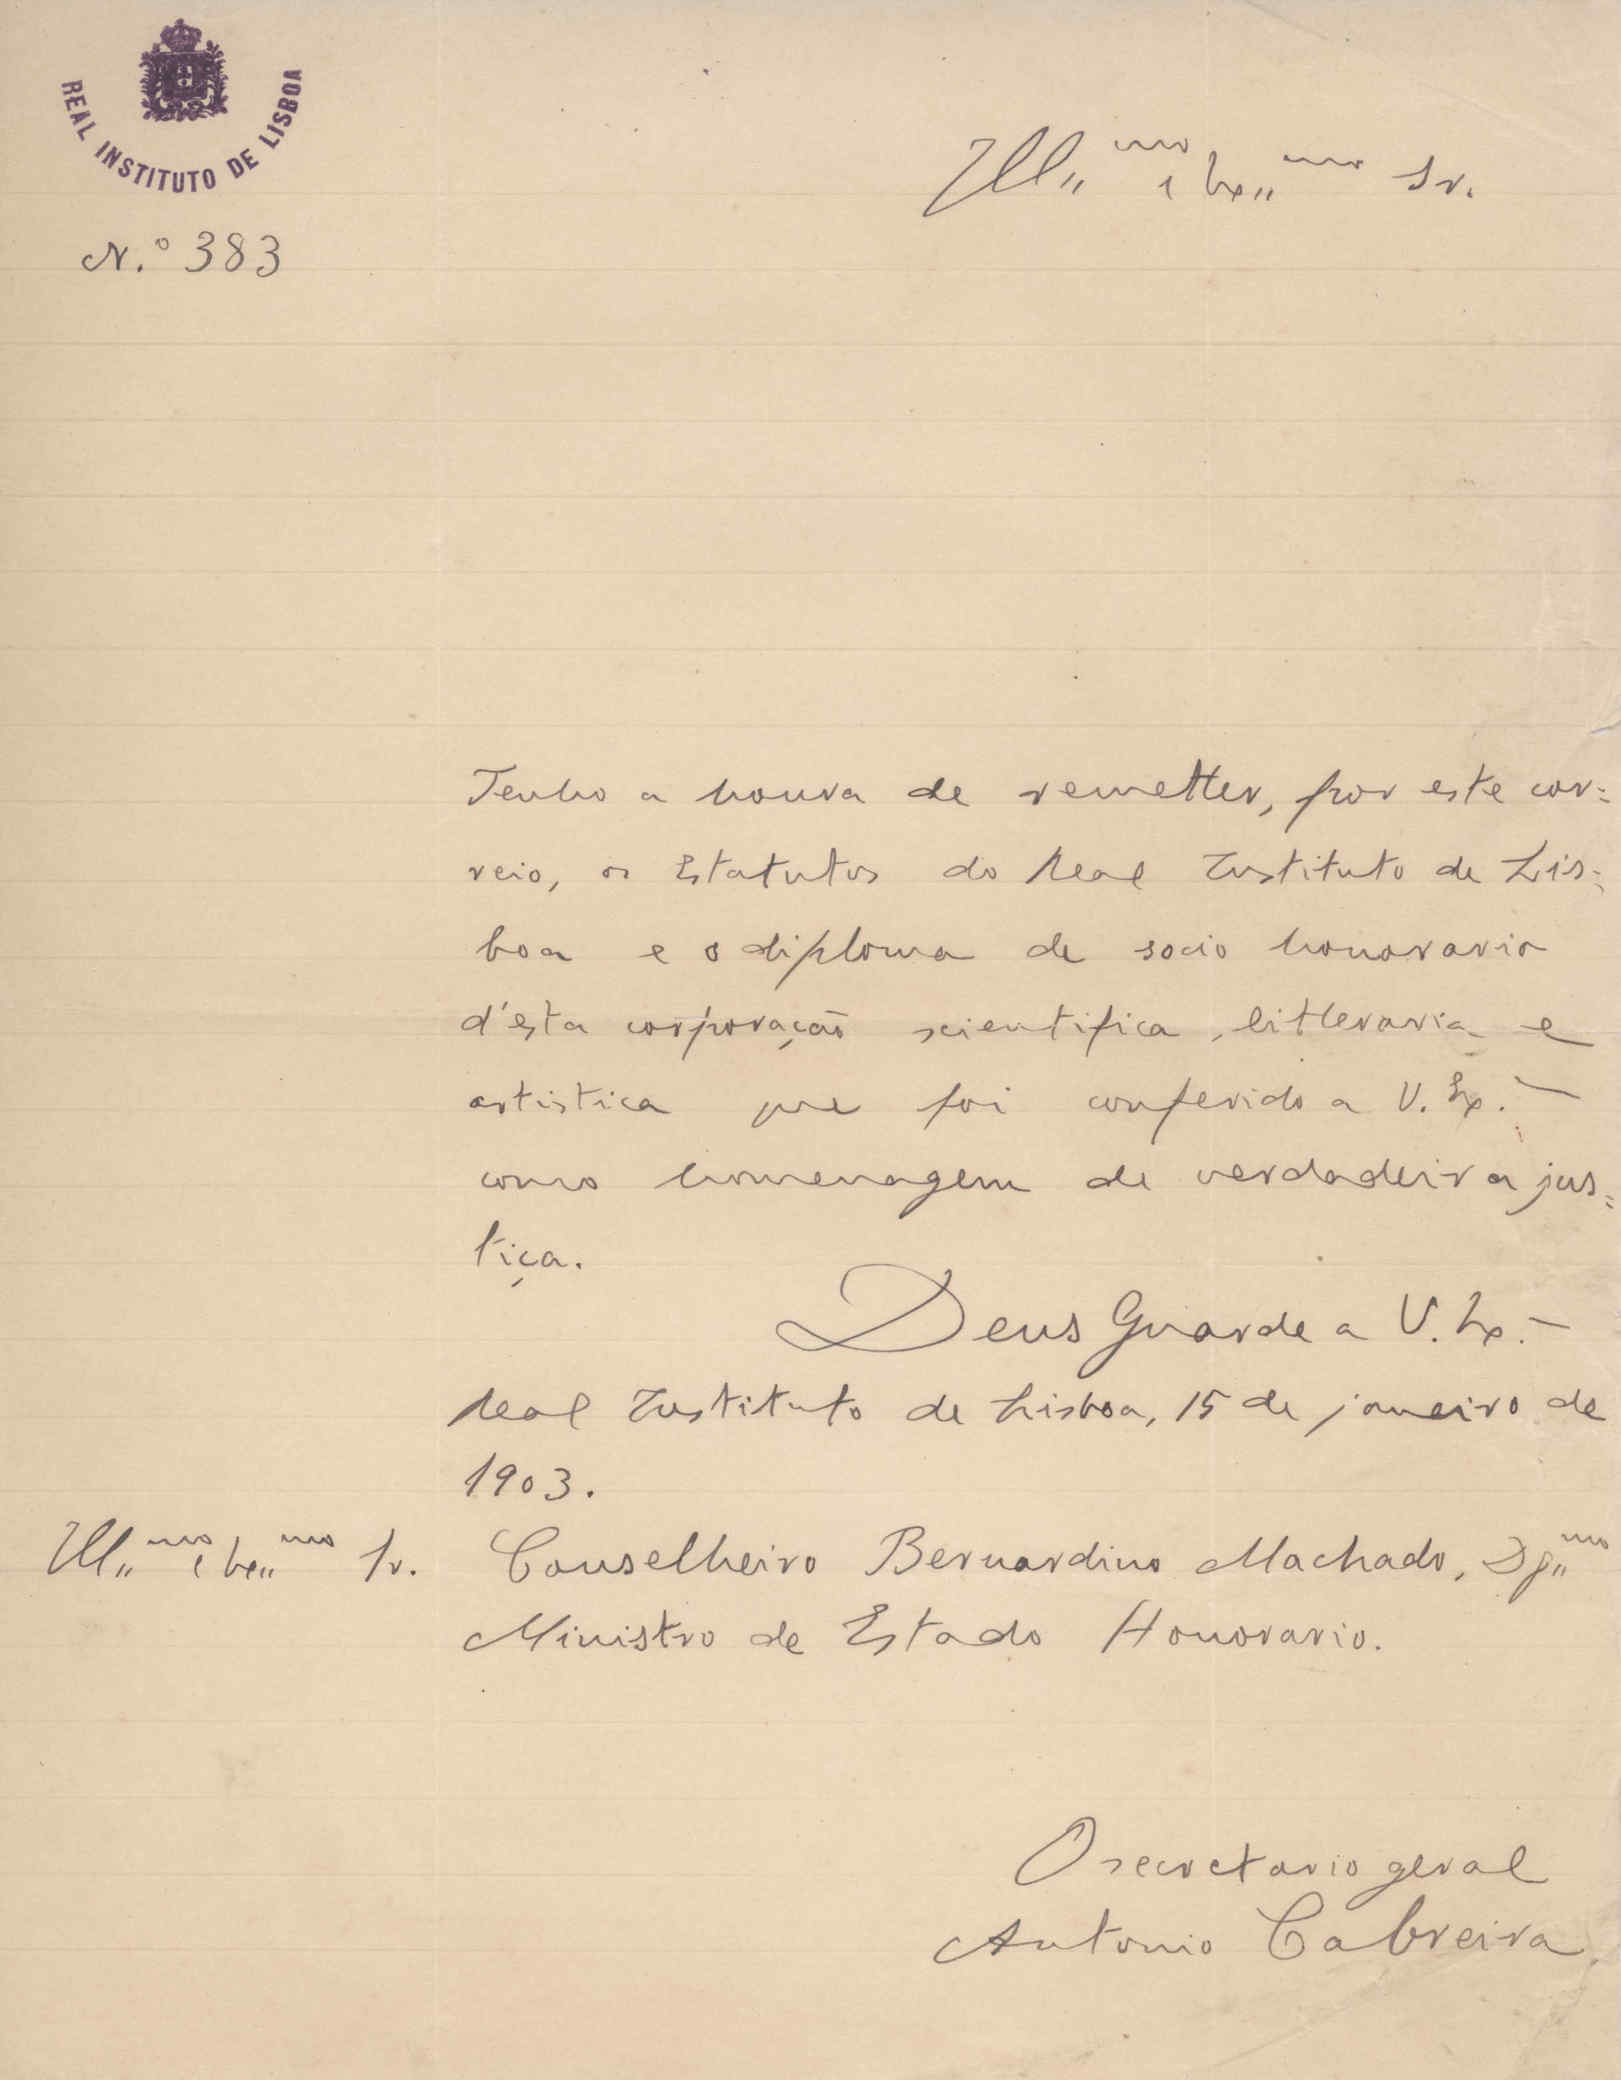 REAL INSTITUTO DE LISBOA
N.º 383
Ill.mo e Ex.mo Sr.
Tenho a honra de remetter, por este cor=
reio, os Estatutos do Real Instituto de Lis=
boa e o diploma de socio honorario
d'esta corporação scientifica, litteraria e
artistica que foi conferido a V. Ex.—
como homenagem de verdadeira jus=
tiça.
Deus Guarde a V. Ex.—
Real Instituto de Lisboa, 15 de janeiro de
1903.
Ill.mo e Ex.mo Sr. Conselheiro Bernardino Machado, Dg.mo
Ministro de Estado Honorario.
O secretario geral
Antonio Cabreira